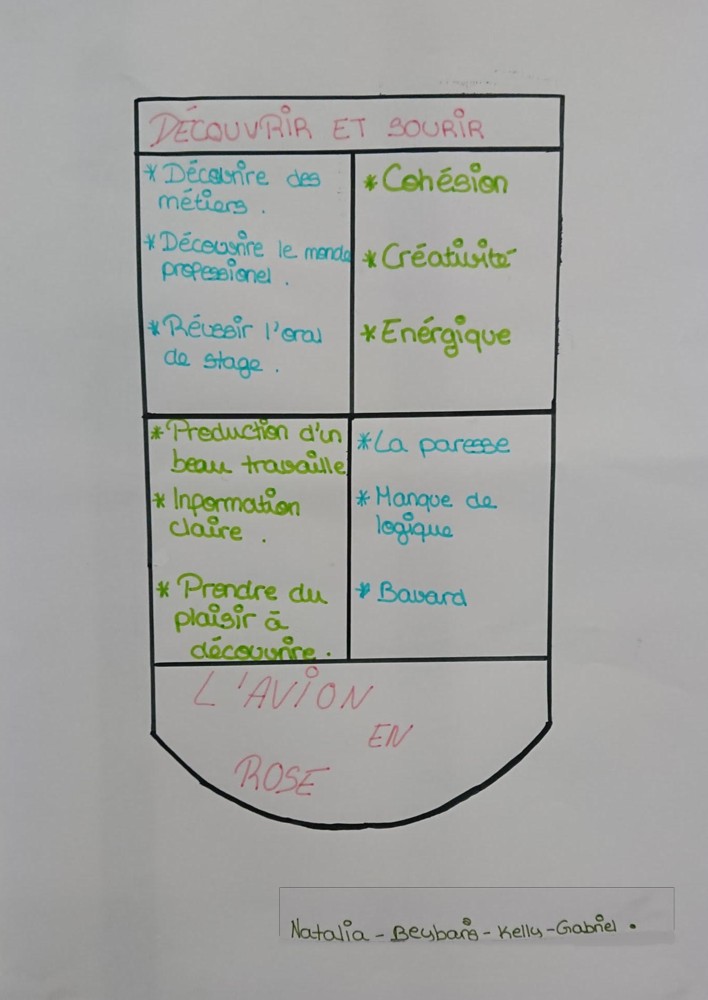 DÉCOUVRIR ET SOURIR
* Découvrire des
métiers.
* Découvrire le monde
professionel.
* Réussir l'oral
de stage.
* Cohésion
* Créativité
* Enérgique
* Production d'un
beau travaille
* Information
claire.
* Prendre du
plaisir à
découvrire.
* La paresse
* Manque de
logique
* Bavard
L'AVION
EN
ROSE
Natalia - Beybars - Kelly - Gabriel.